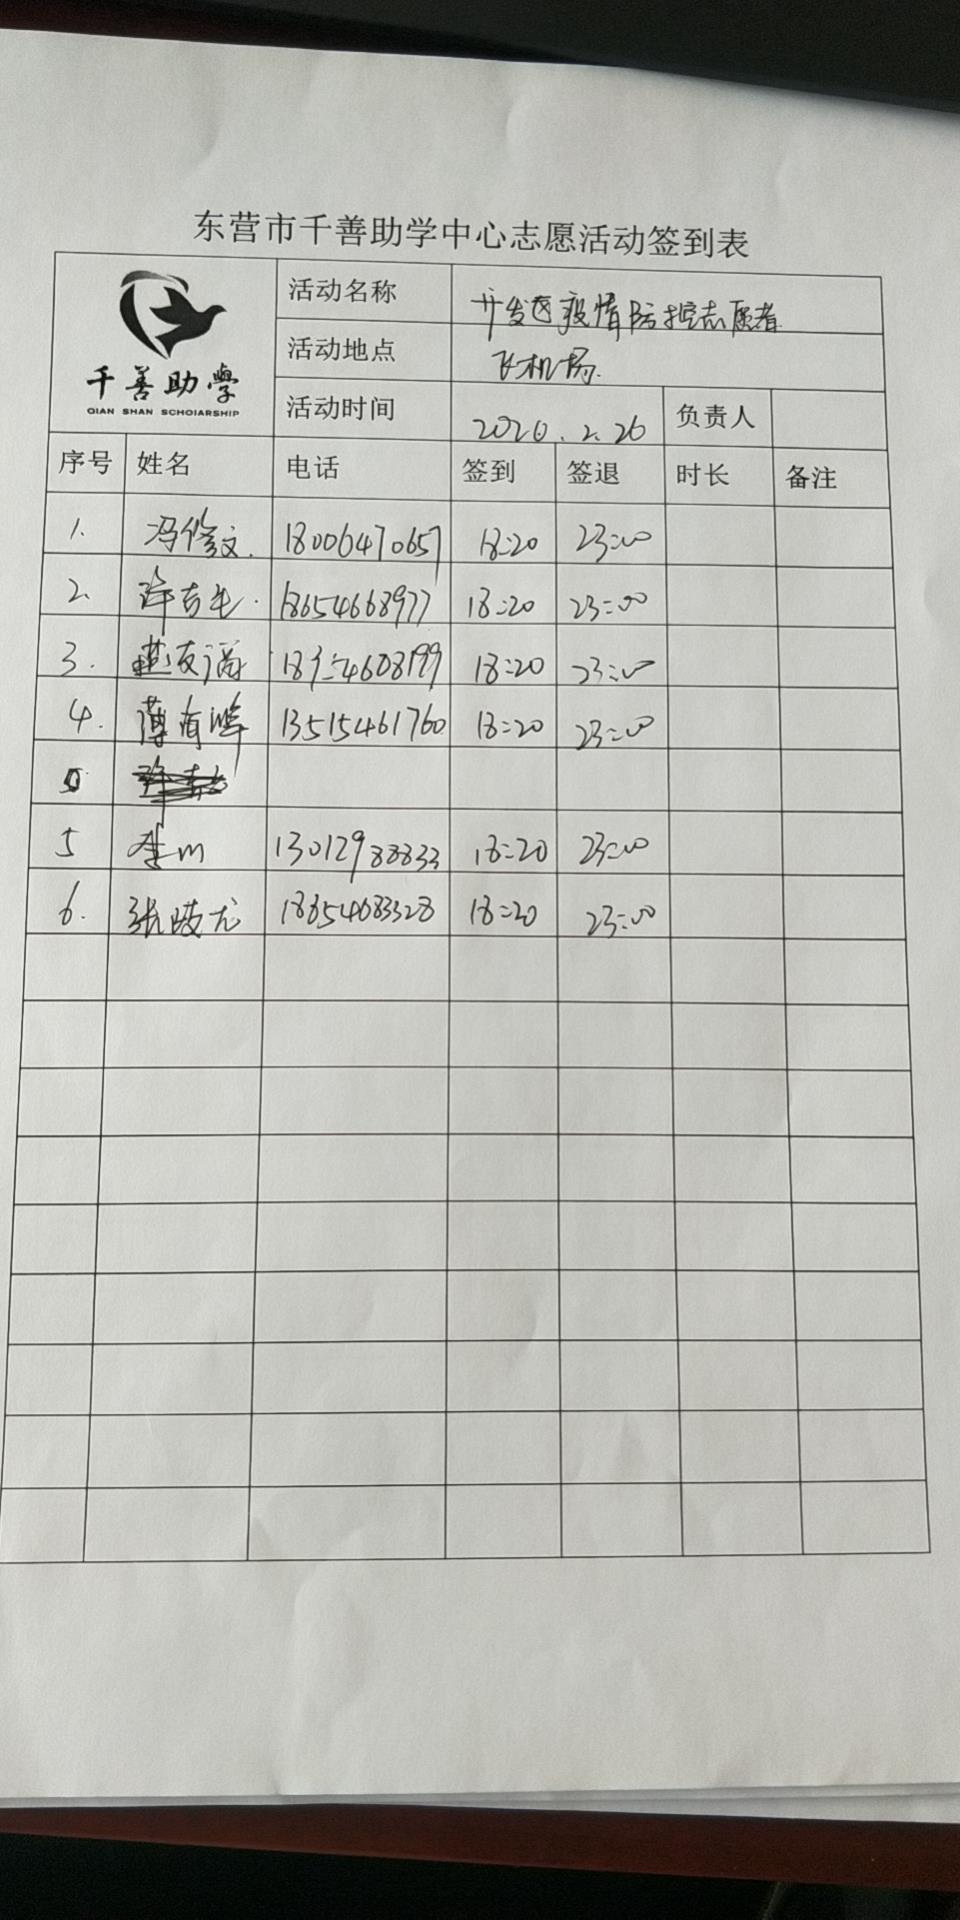 东营市千善助学中心志愿活动签到表
千善助學
QIAN SHAN SCHOIARSHIP
活动名称 开发区疫情防控志愿者
活动地点 飞机场.
活动时间 2020.2.26 负责人
序号 姓名 电话 签到 签退 时长 备注
1. 冯修文. 18006470657 18:20 23:00
2. 许吉七. 18654668977 18:20 23:00
3. 燕友 18:20 23:00
4. 薄有峰 13515461760 18:20 23:00
5 李 13012988833 18:20 23:00
6. 张 18654683328 18:20 23:00